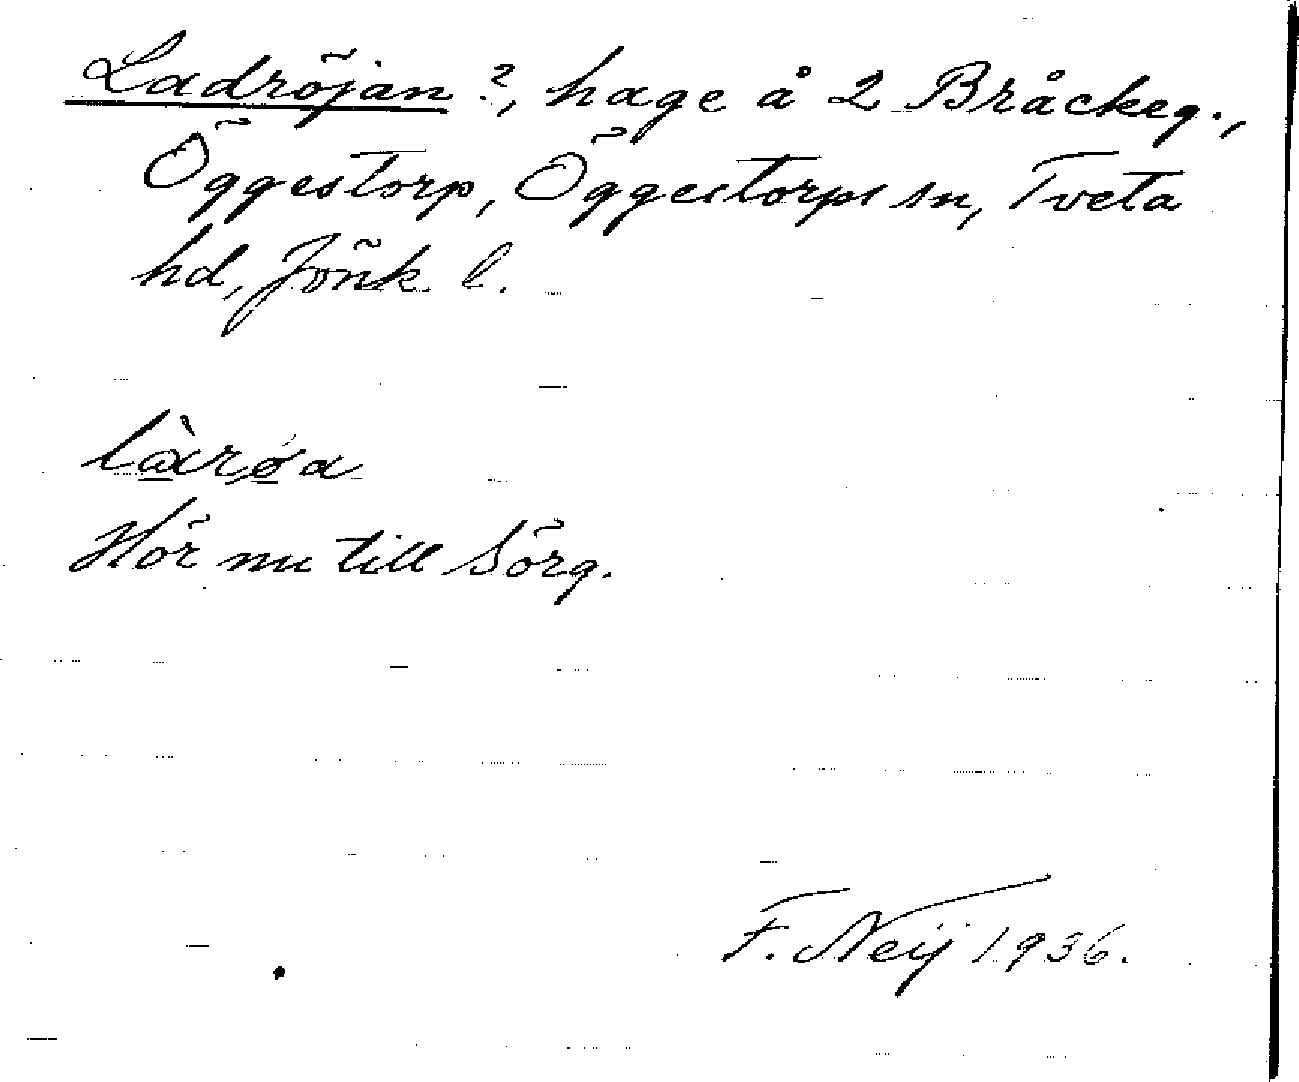 Ladröjan ?, hage å 2 Bråckeg.,
Öggestorp, Öggestorps sn, Tveta
hd, Jönk. l.
Hör nu till Sörg.
F. Neij 1936.